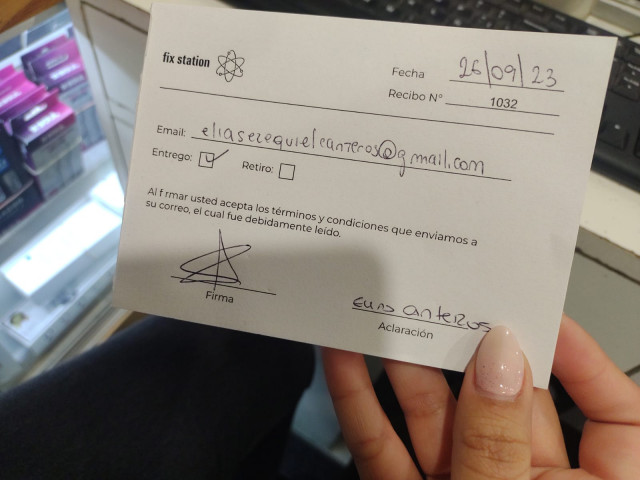 fix station
Fecha 26/09/23
Recibo Nº 1032
Email: eliasezequielcanteros@gmail.com
Entrego: Retiro:
Al f rmar usted acepta los términos y condiciones que enviamos a
su correo, el cual fue debidamente leído.
Firma
canteros
Aclaración